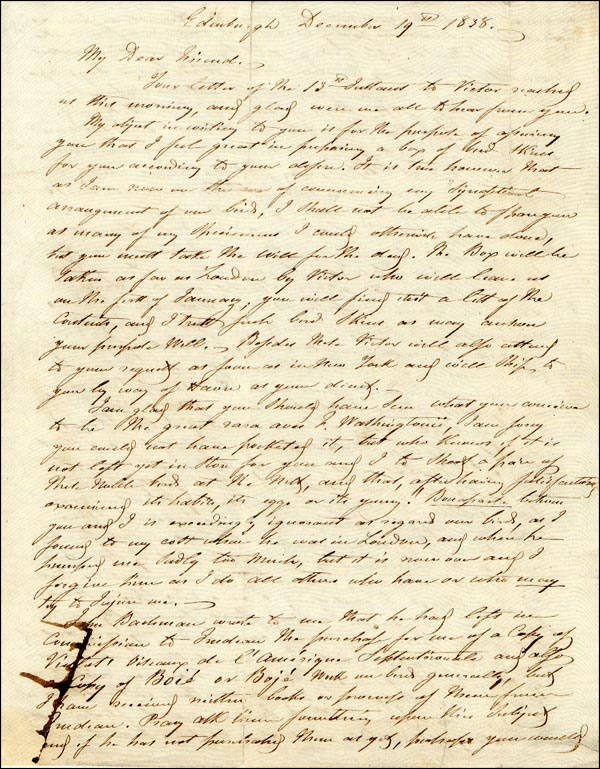 Edinburgh December 19th 1838.
My Dear friend.
Your Letter of the 13th Instant to Victor reached
us this morning, and glad were we all to hear from you.
My object in writing to you is for the purpose of assuring
you that I feel great in preparing a box of bird skins
for you according to your desire. It is true however that
as I am now on the of commencing my "Synoptical
arrangement of our birds, I shall not be able to
as many of my specimens I could otherwise have done,
but you must take the will for the deed. The Box will be
taken as far as London by Victor who will leave us
on the first of January; you will find a list of the
Contents, and I trust such bird skins as may answer
your purpose Well. Besides this Victor will also attend
to your request as soon as in New York and will ship to
you by way of Havre as your direct.
I am glad that you should have seen what you conceive
to be the great rara avis F. Washingtonii, I am sorry
you could not have pocketed it, but who knows if it is
not left yet in store for you and I to shoot a pair of
that noble bird at the nest, and that, after having
examining its habits, its eggs or its young. Bonaparte between
you and I is exceedingly ignorant as regard our birds, as I
found to my cost when he was in London, and where he
pumped me sadly too much, but it is now over and I
forgive him as I do all others who have or who may
try to Injure me.
Bachman wrote to me that he had left in
Commission to Trudeau the purchase for me of a Copy of
Vieillot's Oiseaux de l'Amérique Septentrionale and also
a Copy of Boié or Bojé Work on birds generally, but
I have received neither books or promise of them from
Trudeau. Pray ask him something upon this subject
and if he has not purchased them as yet, perhaps you would